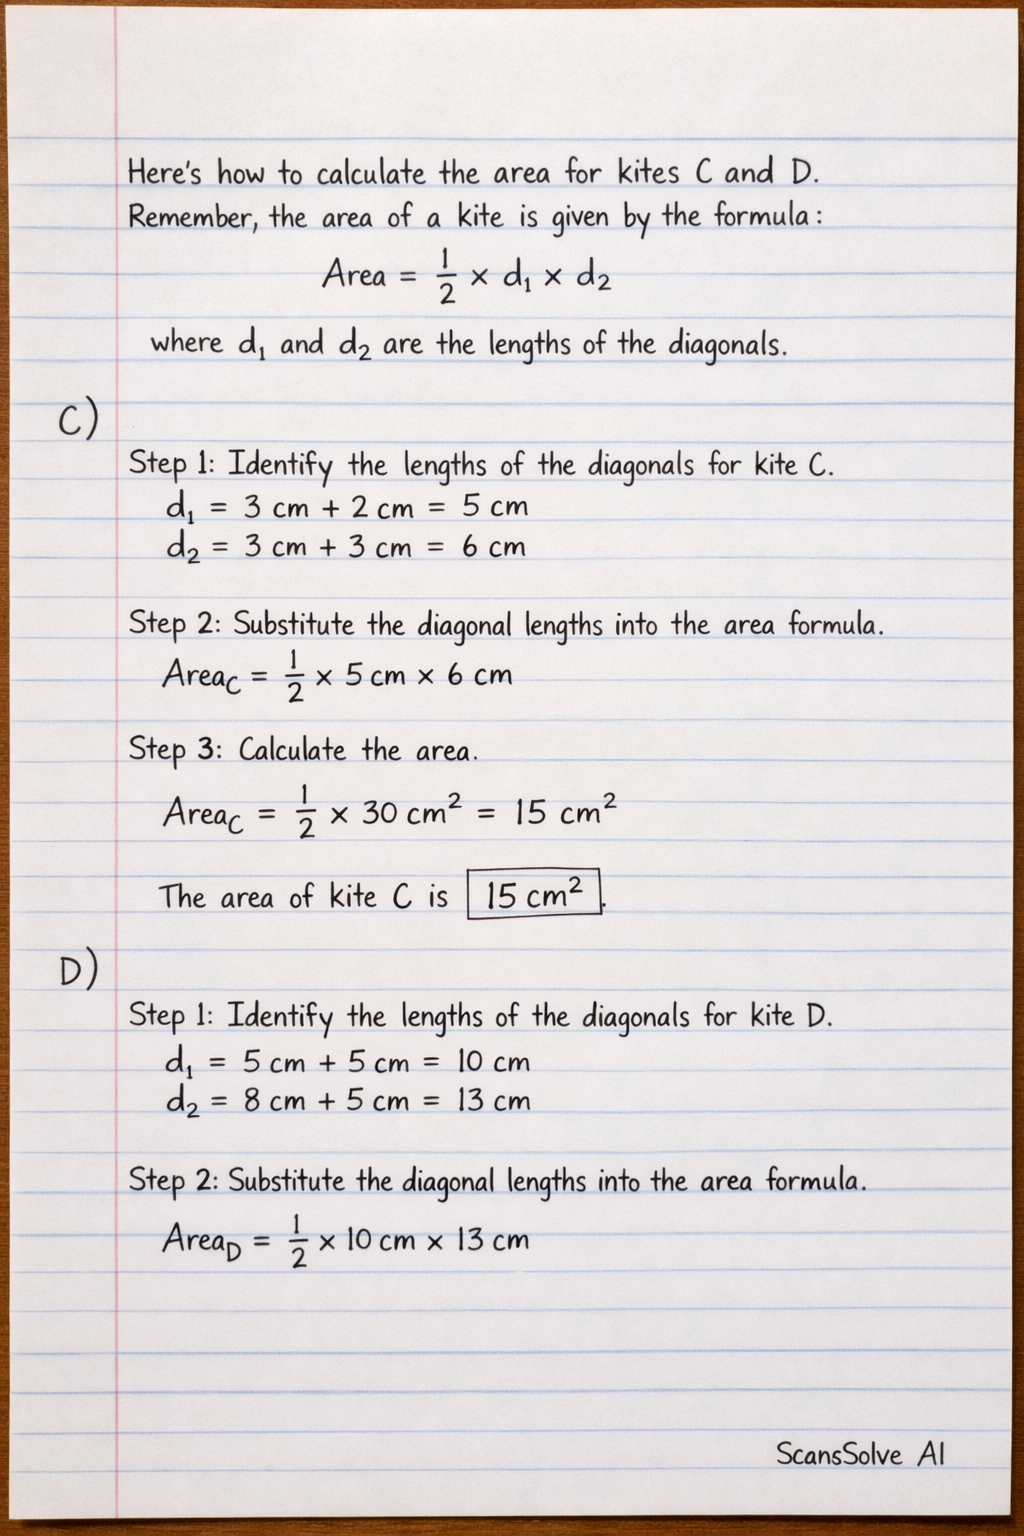 Here's how to calculate the area for kites C and D.
Remember, the area of a kite is given by the formula:
Area = 1/2 × d₁ × d₂
where d₁ and d₂ are the lengths of the diagonals.
C)
Step 1: Identify the lengths of the diagonals for kite C.
d₁ = 3 cm + 2 cm = 5 cm
d₂ = 3 cm + 3 cm = 6 cm
Step 2: Substitute the diagonal lengths into the area formula.
Area_C = 1/2 × 5 cm × 6 cm
Step 3: Calculate the area.
Area_C = 1/2 × 30 cm² = 15 cm²
The area of kite C is 15 cm².
D)
Step 1: Identify the lengths of the diagonals for kite D.
d₁ = 5 cm + 5 cm = 10 cm
d₂ = 8 cm + 5 cm = 13 cm
Step 2: Substitute the diagonal lengths into the area formula.
Area_D = 1/2 × 10 cm × 13 cm
ScansSolve AI